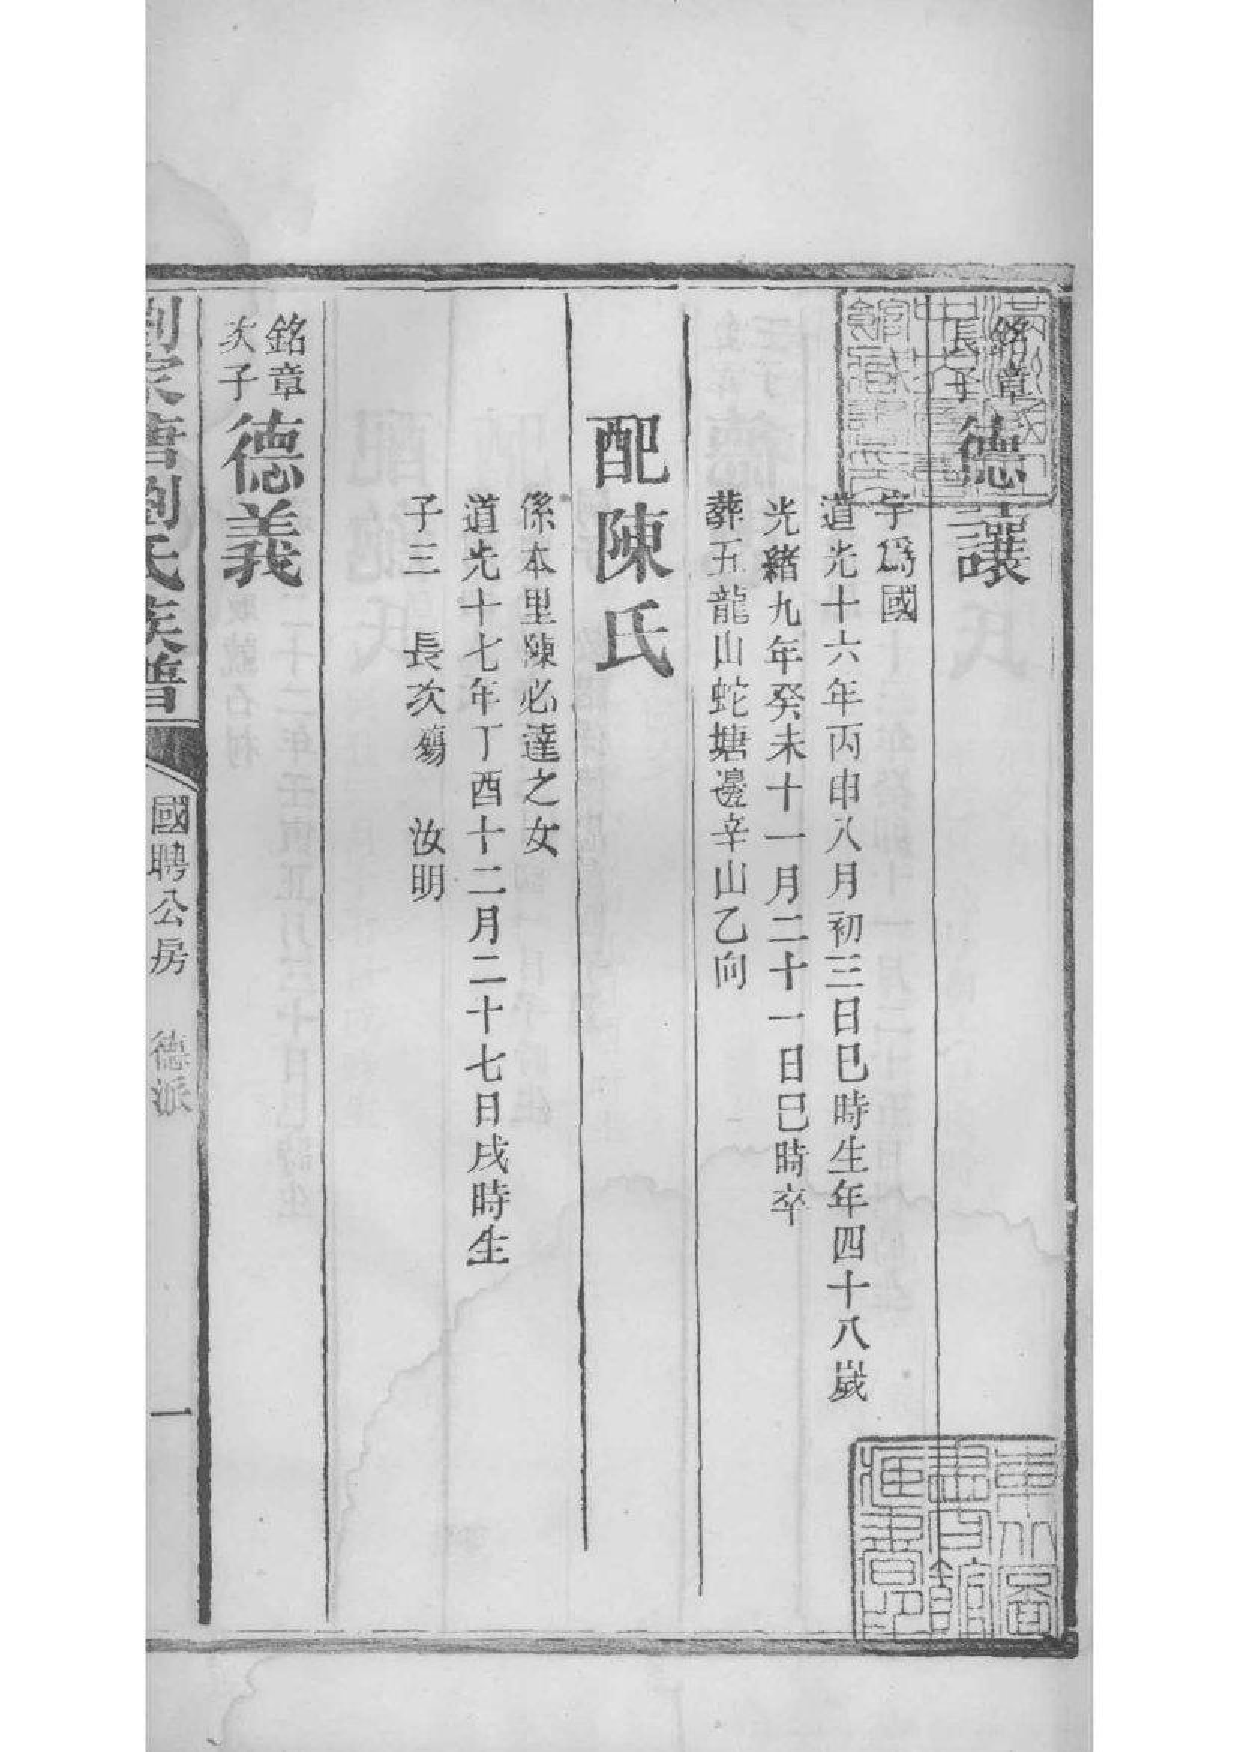 銘章
長子
德讓
字爲國
道光十六年丙申八月初三日巳時生年四十八歲
光緒九年癸未十一月二十一日巳時卒
葬五龍山蛇塘邊辛山乙向
配陳氏
係本里陳必達之女
道光十七年丁酉十二月二十七日戌時生
子三 長次殤 汝明
銘章
次子
德義
劉家塘劉氏族譜
國聘公房 德派
一